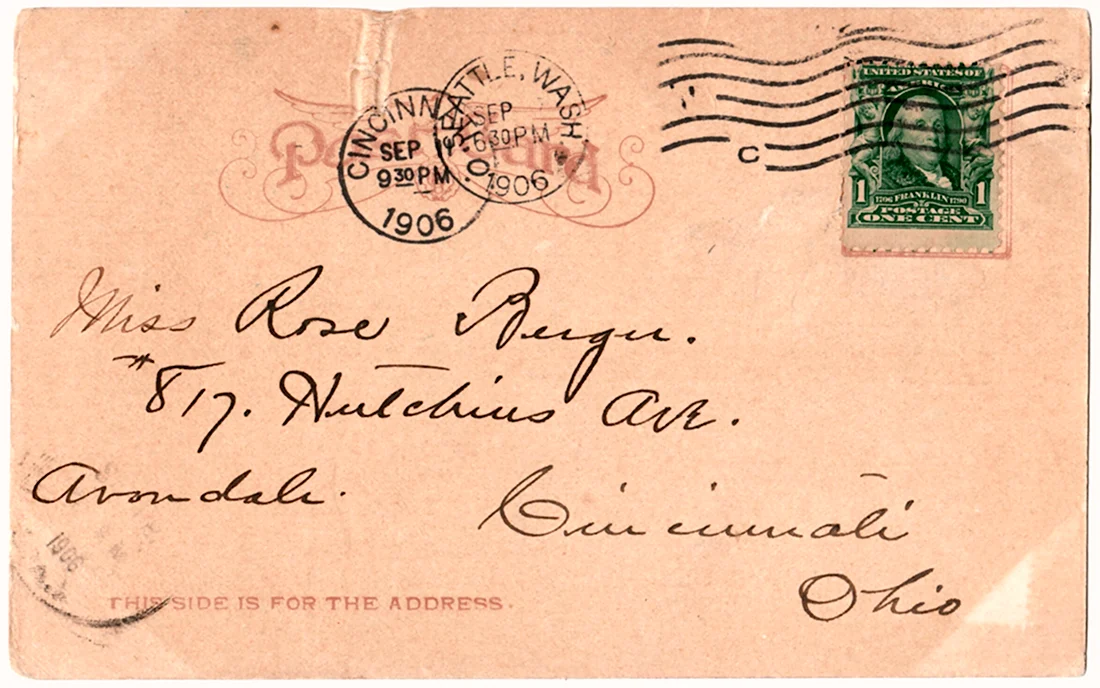 Post Card
CINCINN
SEP 11
9 30 PM
1906
O.
SEATTLE, WASH.
SEP
6 30 PM
1906
C
UNITED STATES OF
AMERICA
1 1
1706 FRANKLIN 1790
POSTAGE
ONE CENT
Miss Rose Berger.
#817. Hutchins Ave.
Avondale.
Cincinnati
Ohio
1906
THIS SIDE IS FOR THE ADDRESS.